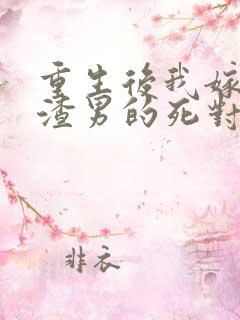 重生後我嫁
渣男的死對
非衣